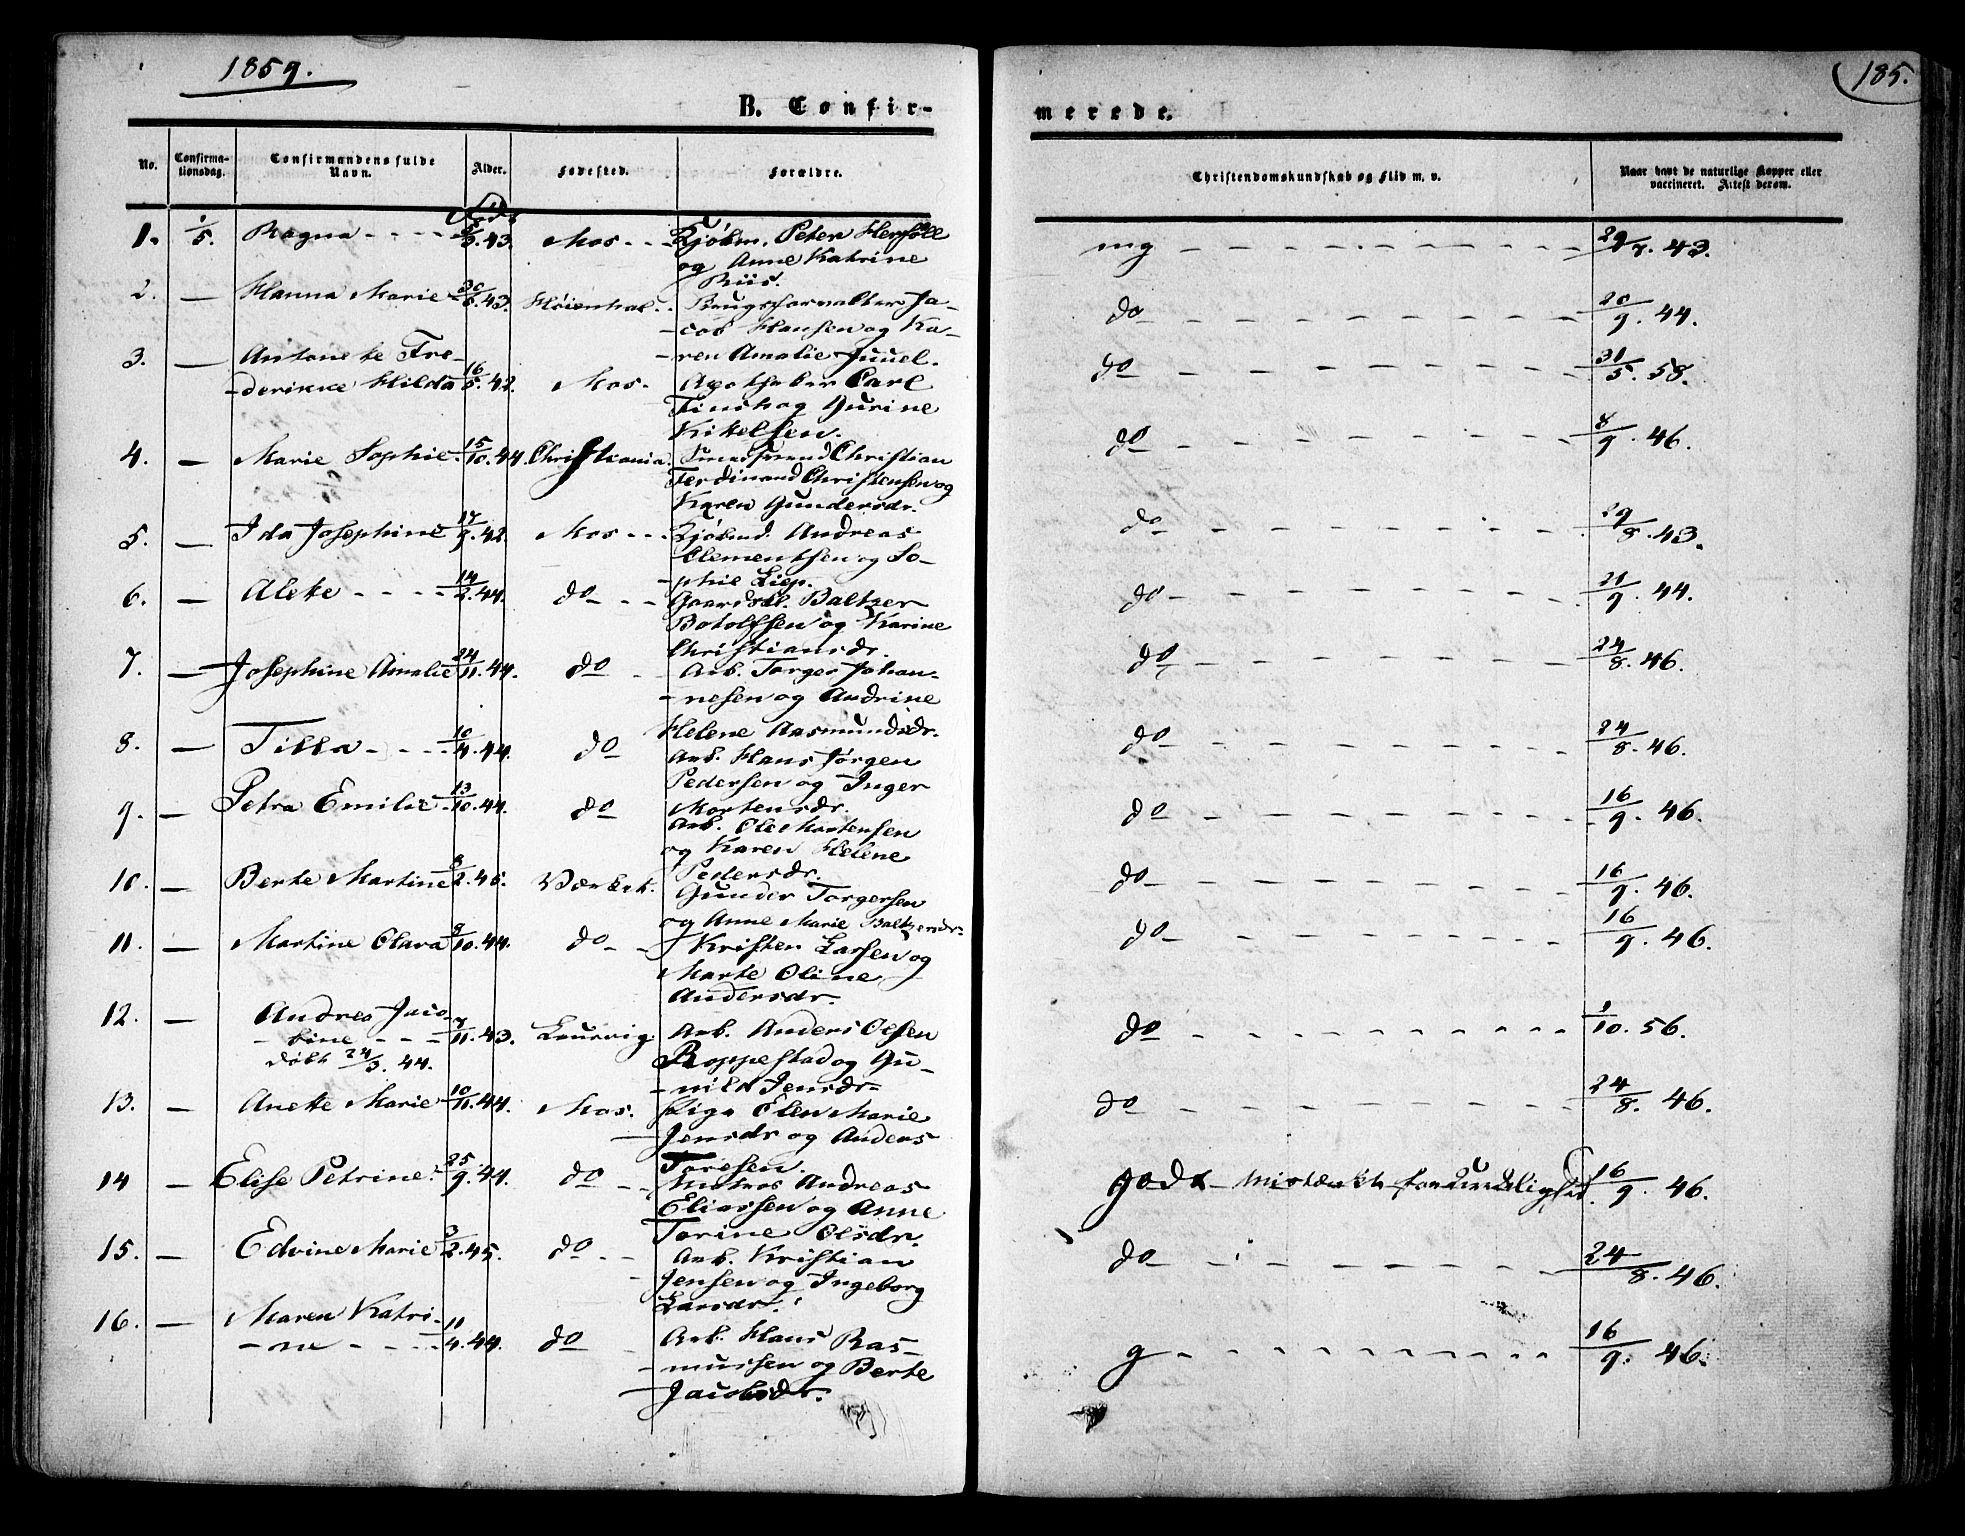 1859.
185.
B. Confir-
merede.
No.
Confirma-
tionsdag.
Confirmandens fulde
Navn.
Alder.
Fødested.
Forældre.
Christendomskundskab og Flid m. v.
Naar havt de naturlige Kopper eller
vaccineret. Attest derom.
1. 1/5. Ragna - - - - 5/3.43. Mos - - - Kjøbm. Peter
og Anne Katrine
Riis.
mg 29/7. 43.
2. — Hanna Marie - 30/6.43. Brugsforvalter Ja-
-cob Hansen og Ka-
-ren Amalie Juuel.
do 20/9. 44.
3. — Antonette Fre-
-derikke Hilda 16/5. 42. Mos. Apotheker Carl
og Gurine
Kikelsen.
do 31/5. 58.
4. — Marie Sophie. 15/10. 44. Christiania. Christian
Ferdinand Christensen og
Karen Gundersdr.
do 8/9. 46.
5. — Ida Josephine 17/9. 42. Mos - - - Kjøbmd. Andreas
Clementsen og So-
-phie Liep.
do 29/8. 43.
6. — Alete - - - - 14/2. 44. do - - Gaardsel. Baltzer
Botolfsen og Karine
Christiansdr.
do 21/9. 44.
7. — Josephine Amalie 24/11. 44. do - Arb. Torger Johan-
-nesen og Andrine
Helene Aasmundsdr.
do 24/8. 46.
8. — Tilla - - - - 10/4. 44. do Arb. Hans Jørgen
Pedersen og Inger
Mortensdr.
do 24/8. 46.
9. — Petra Emilie - 13/10. 44. do Arb. Ole Mortensen
og Karen Helene
Pedersdr.
do 16/9. 46.
10. — Berte Martine 8/2. 45. Værket. Gunder Torgersen
og Anne Marie Baltzersdr.
do 16/9. 46.
11. — Martine Olava 9/10. 44. do - - Kristen Larsen og
Marte Oline
Andersdr.
do 16/9. 46.
12. — Andrea Jaco-
- bine - - - 7/11. 43. Laurvig. Arb. Anders Olsen
døbt 24/3. 44. Roppestad og Gu-
-nild Jensdr.
do 1/10. 56.
13. — Anette Marie - 10/11. 44. Mos. Pige Elen Marie
Jensdr og Anders
Toresen.
do 24/8. 46.
14 — Elise Petrine. 25/9. 44. do - - Matros Andreas
Eliassen og Anne
Torine Olsdr.
godt mistænkt for 16/9. 46.
15. — Edvine Marie 3/2. 45. do - - Arb. Kristian
Jensen og Ingeborg
Larsdr.
do 24/8. 46.
16. — Maren Katri-
- ne - - - - 11/4. 44. do - Arb. Hans Ras-
-mussen og Berte
Jacobsdr.
g 16/9. 46.